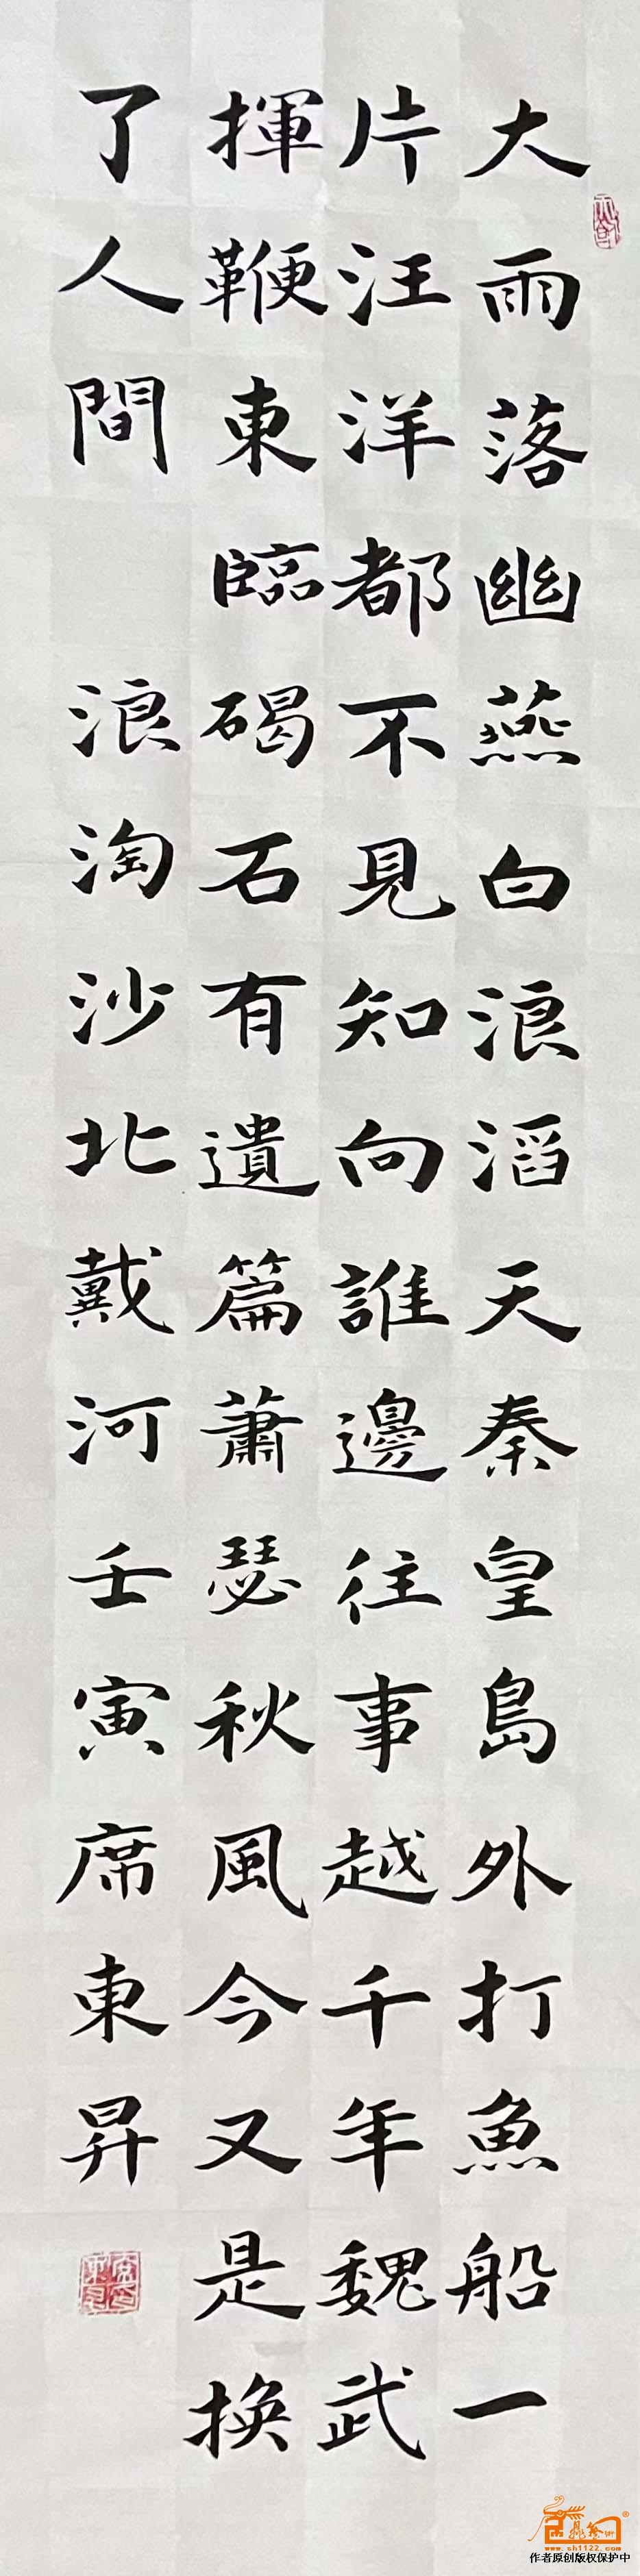 大雨落幽燕白浪滔天秦皇島外打魚船一
片汪洋都不見知向誰邊往事越千年魏武
揮鞭東臨碣石有遺篇蕭瑟秋風今又是換
了人間 浪淘沙北戴河壬寅席東昇
www.sh1122.com
作者原创版权保护中